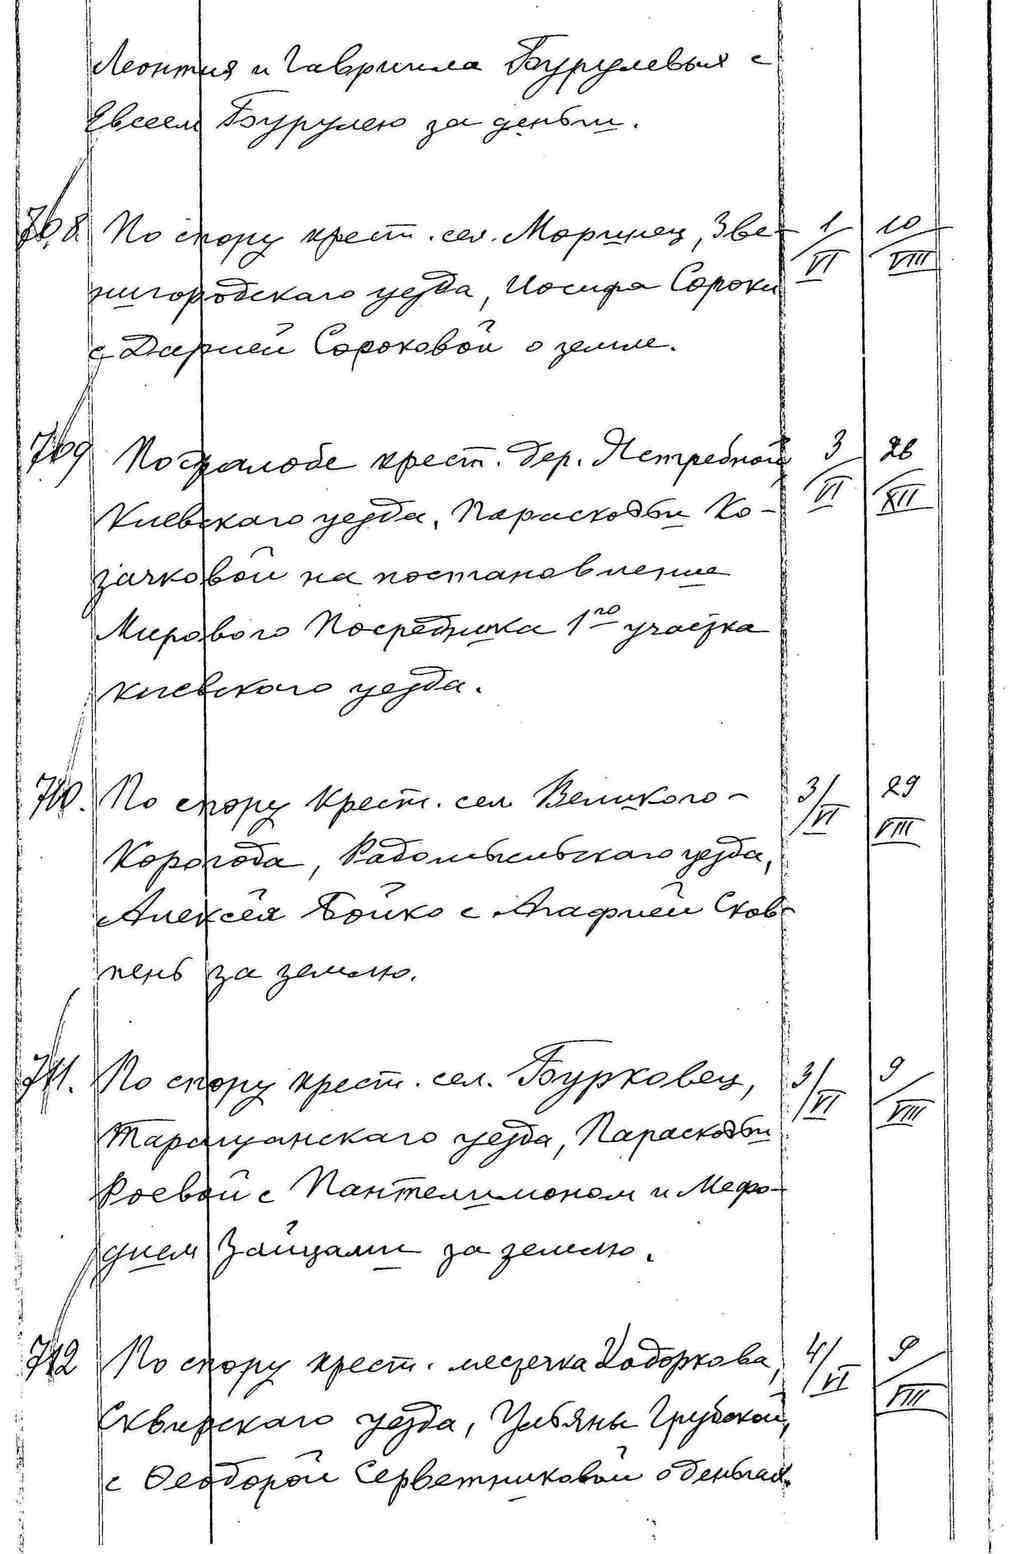 Леонтия и Гавриила Бурулевых с
Евсеем Бурулею за деньги.
708 По спору крест. сел. Моринец, Зве- 1/VI 10/VIII
нигородскаго уезда, Иосифа Сороки
с Дарией Сороковой о земле.
709 По жалобе крест. дер. Ястребной, 3/VI 28/XII
Киевскаго уезда, Параскевы Ко-
зачковой на постановление
Мирового Посредника 1го участка
Киевского уезда.
710. По спору Крест. сел Великого- 3/VI 29/VIII
Корогода, Радомысльскаго уезда,
Алексея Бойко с Агафией Сков-
пень за землю.
711. По спору крест. сел. Бурковец, 3/VI 9/VIII
Таращанскаго уезда, Параскевы
Роевой с Пантелимоном и Мефо-
дием Зайцами за землю.
712 По спору крест. местечка Ходоркова, 4/VI 9/VIII
Сквирскаго уезда, Ульяны Грубской,
с Феодорой Серветниковой о деньгах.